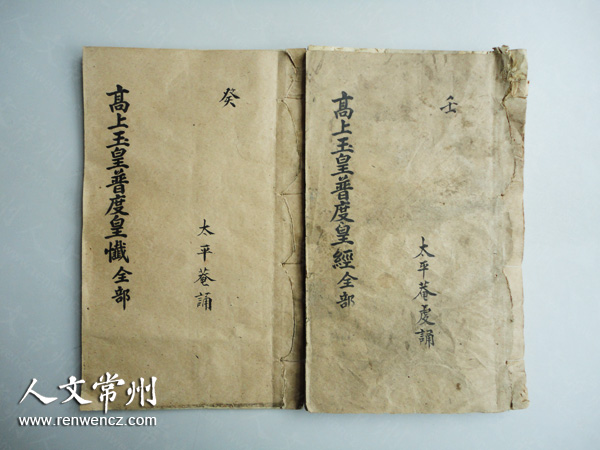 癸
高上玉皇普度皇懺全部
太平菴誦
壬
高上玉皇普度皇經全部
太平菴虔誦
人文常州
www.renwencz.com